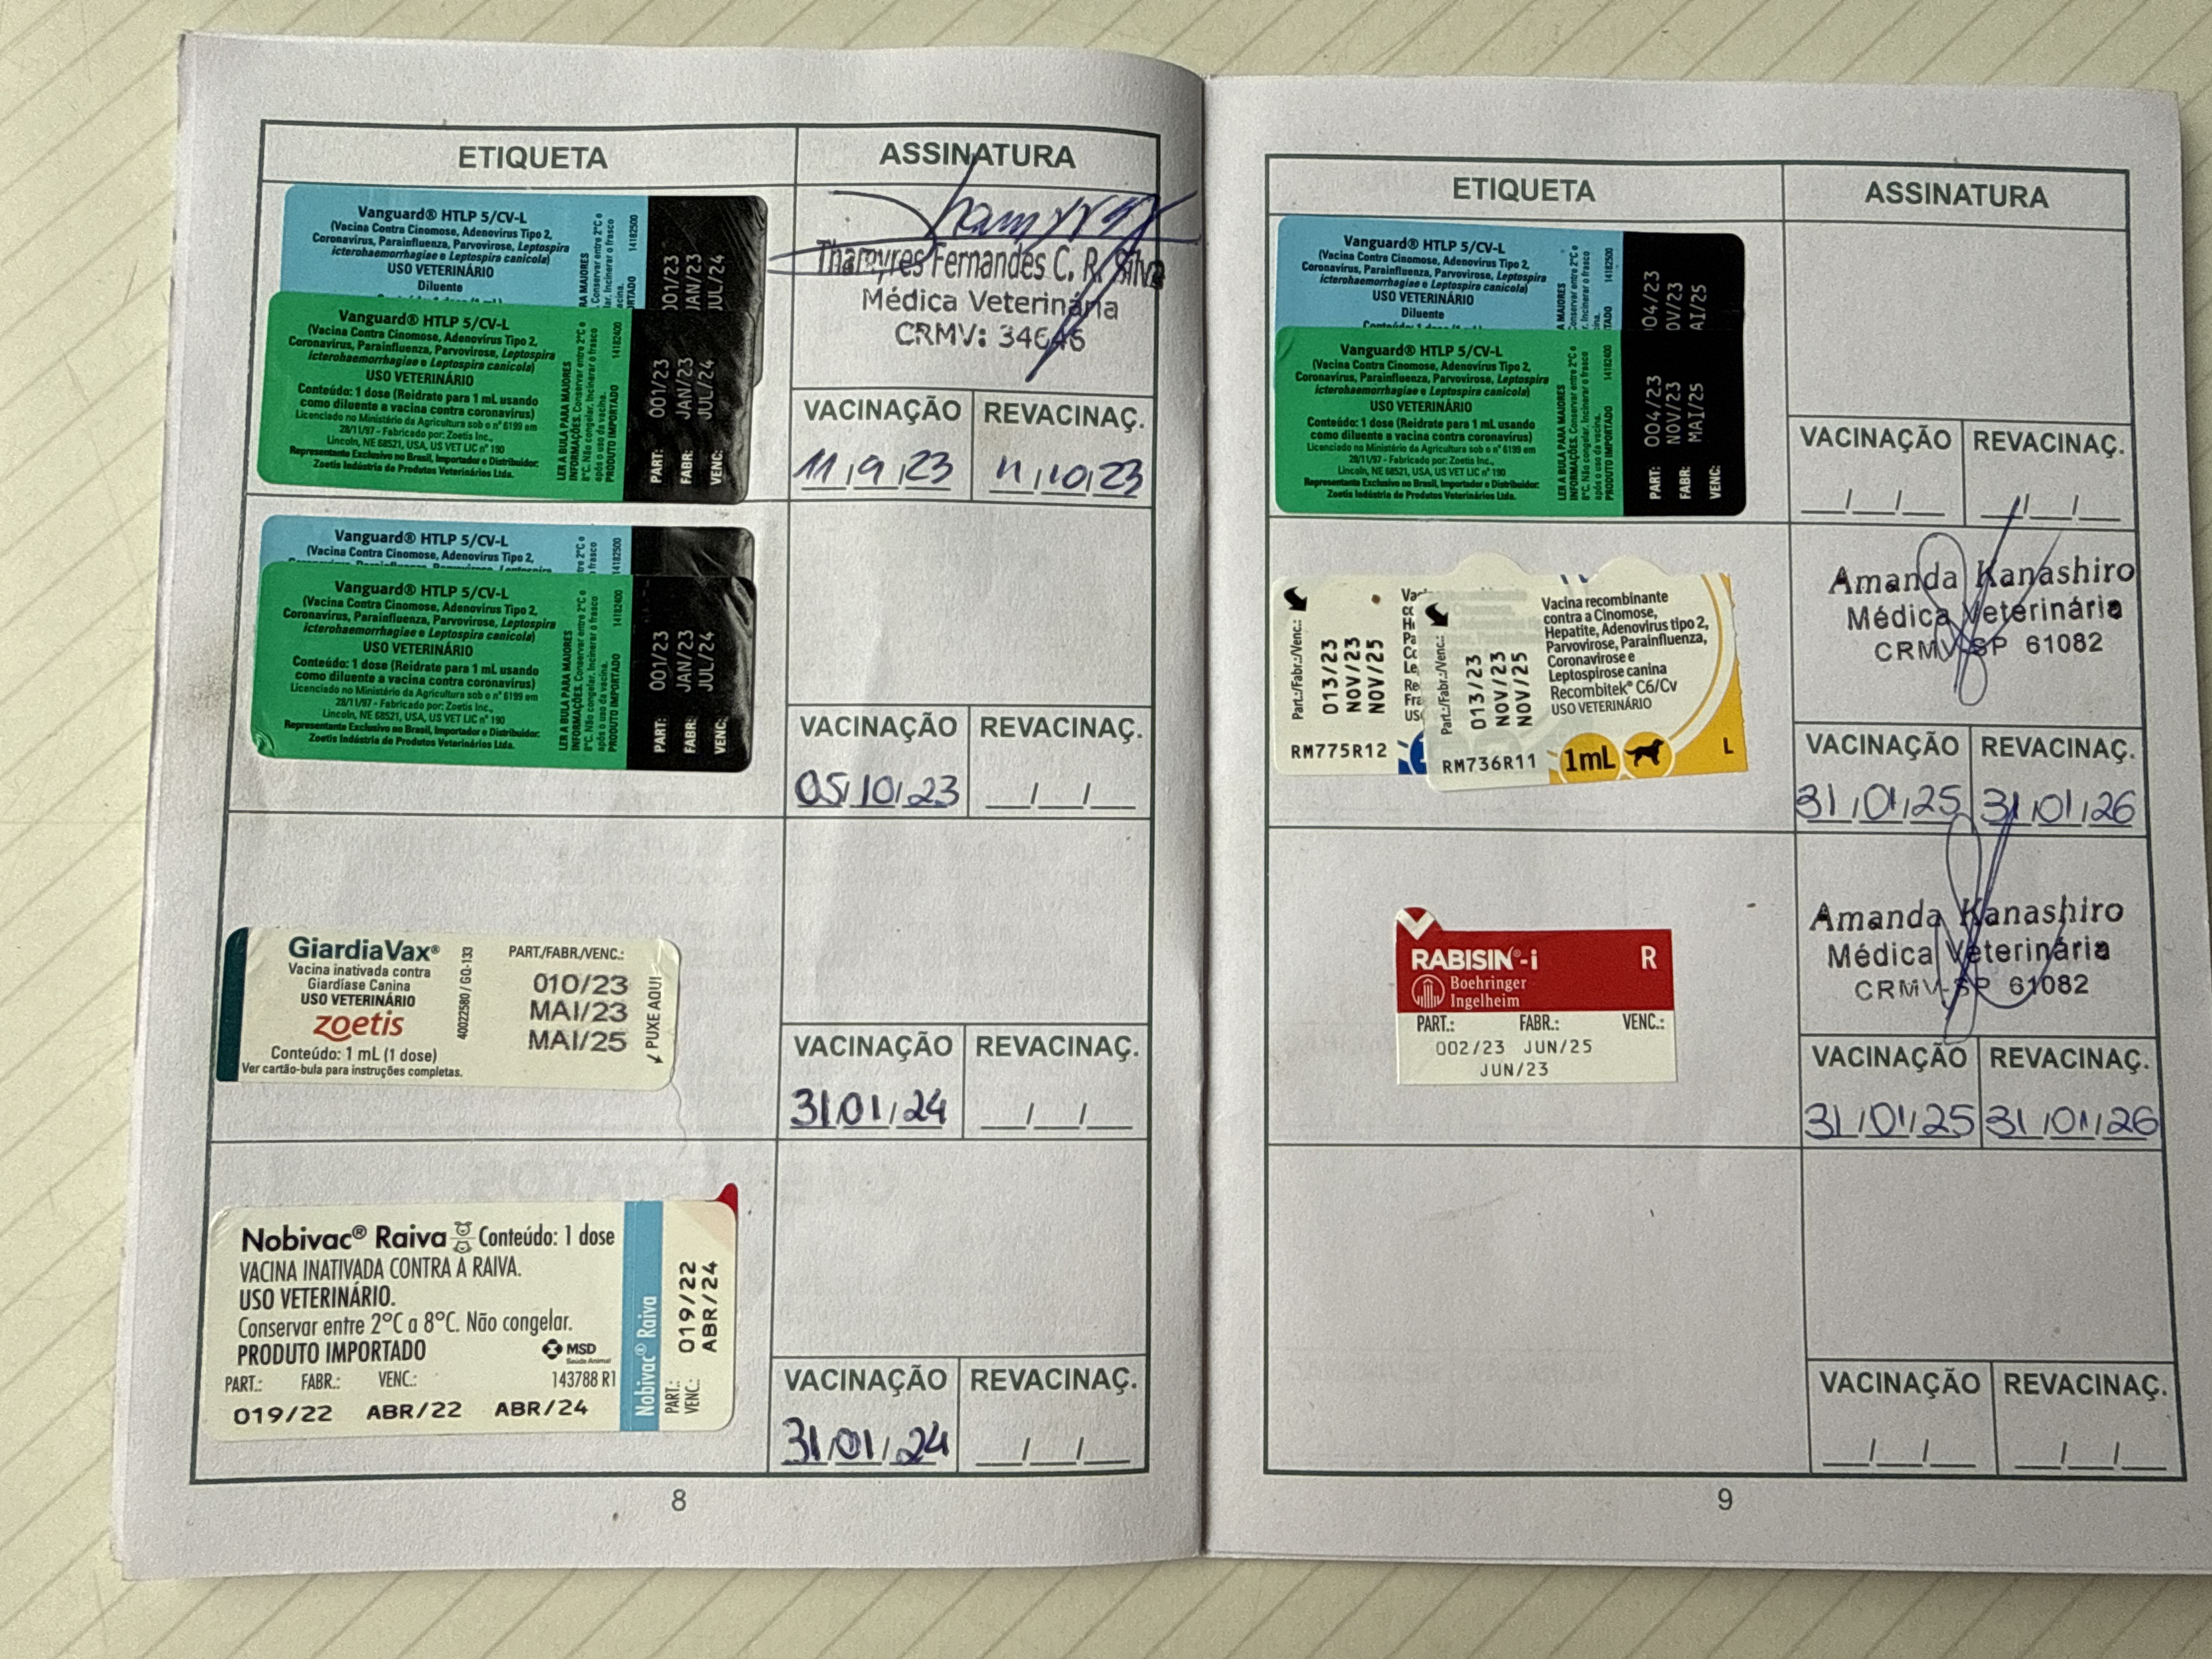 ETIQUETA
ASSINATURA
Vanguard® HTLP 5/CV-L
(Vacina Contra Cinomose, Adenovirus Tipo 2,
Coronavirus, Parainfluenza, Parvovirose, Leptospira
icterohaemorrhagiae e Leptospira canicola)
USO VETERINÁRIO
Diluente
14182500
001/23
JAN/23
JUL/24
Vanguard® HTLP 5/CV-L
(Vacina Contra Cinomose, Adenovirus Tipo 2,
Coronavirus, Parainfluenza, Parvovirose, Leptospira
icterohaemorrhagiae e Leptospira canicola)
USO VETERINÁRIO
Conteúdo: 1 dose (Reidrate para 1 mL usando
como diluente a vacina contra coronavirus)
Licenciado no Ministério da Agricultura sob o nº 6199 em
28/11/97 - Fabricado por: Zoetis Inc.,
Lincoln, NE 68521, USA, US VET LIC nº 190
Representante Exclusivo no Brasil, Importador e Distribuidor:
Zoetis Indústria de Produtos Veterinários Ltda.
LER A BULA PARA MAIORES
INFORMAÇÕES. Conservar entre 2°C e
8°C. Não congelar. Incinerar o frasco
após o uso da vacina.
PRODUTO IMPORTADO 14182400
PART: 001/23
FABR: JAN/23
VENC: JUL/24
Thamyres Fernandes C. R. Silva
Médica Veterinária
CRMV: 34646
VACINAÇÃO REVACINAÇ.
11/9/23 11/10/23
Vanguard® HTLP 5/CV-L
(Vacina Contra Cinomose, Adenovirus Tipo 2,
14182500
Vanguard® HTLP 5/CV-L
(Vacina Contra Cinomose, Adenovirus Tipo 2,
Coronavirus, Parainfluenza, Parvovirose, Leptospira
icterohaemorrhagiae e Leptospira canicola)
USO VETERINÁRIO
Conteúdo: 1 dose (Reidrate para 1 mL usando
como diluente a vacina contra coronavirus)
Licenciado no Ministério da Agricultura sob o nº 6199 em
28/11/97 - Fabricado por: Zoetis Inc.,
Lincoln, NE 68521, USA, US VET LIC nº 190
Representante Exclusivo no Brasil, Importador e Distribuidor:
Zoetis Indústria de Produtos Veterinários Ltda.
LER A BULA PARA MAIORES
INFORMAÇÕES. Conservar entre 2°C e
8°C. Não congelar. Incinerar o frasco
após o uso da vacina.
PRODUTO IMPORTADO 14182400
PART: 001/23
FABR: JAN/23
VENC: JUL/24
VACINAÇÃO REVACINAÇ.
05/10/23 / /
GiardiaVax®
Vacina inativada contra
Giardíase Canina
USO VETERINÁRIO
zoetis
Conteúdo: 1 mL (1 dose)
Ver cartão-bula para instruções completas.
40022580 / GQ-133
PART./FABR./VENC.:
010/23
MAI/23
MAI/25
PUXE AQUI
VACINAÇÃO REVACINAÇ.
31/01/24 / /
Nobivac® Raiva Conteúdo: 1 dose
VACINA INATIVADA CONTRA A RAIVA.
USO VETERINÁRIO.
Conservar entre 2°C a 8°C. Não congelar.
PRODUTO IMPORTADO
MSD
Saúde Animal
PART.: FABR.: VENC.: 143788 R1
019/22 ABR/22 ABR/24
Nobivac® Raiva
PART.: 019/22
VENC.: ABR/24
VACINAÇÃO REVACINAÇ.
31/01/24 / /
8
ETIQUETA
ASSINATURA
Vanguard® HTLP 5/CV-L
(Vacina Contra Cinomose, Adenovirus Tipo 2,
Coronavirus, Parainfluenza, Parvovirose, Leptospira
icterohaemorrhagiae e Leptospira canicola)
USO VETERINÁRIO
Diluente
14182500
04/23
OV/23
AI/25
Vanguard® HTLP 5/CV-L
(Vacina Contra Cinomose, Adenovirus Tipo 2,
Coronavirus, Parainfluenza, Parvovirose, Leptospira
icterohaemorrhagiae e Leptospira canicola)
USO VETERINÁRIO
Conteúdo: 1 dose (Reidrate para 1 mL usando
como diluente a vacina contra coronavirus)
Licenciado no Ministério da Agricultura sob o nº 6199 em
28/11/97 - Fabricado por: Zoetis Inc.,
Lincoln, NE 68521, USA, US VET LIC nº 190
Representante Exclusivo no Brasil, Importador e Distribuidor:
Zoetis Indústria de Produtos Veterinários Ltda.
LER A BULA PARA MAIORES
INFORMAÇÕES. Conservar entre 2°C e
8°C. Não congelar. Incinerar o frasco
após o uso da vacina.
PRODUTO IMPORTADO 14182400
PART: 004/23
FABR: NOV/23
VENC: MAI/25
VACINAÇÃO REVACINAÇ.
/ / / /
Part.:/Fabr.:/Venc.:
013/23
NOV/23
NOV/25
RM775R12
Part.:/Fabr.:/Venc.:
013/23
NOV/23
NOV/25
RM736R11
Vacina recombinante
contra a Cinomose,
Hepatite, Adenovirus tipo 2,
Parvovirose, Parainfluenza,
Coronavirose e
Leptospirose canina
Recombitek® C6/Cv
USO VETERINÁRIO
1mL
L
Amanda Kanashiro
Médica Veterinária
CRMV-SP 61082
VACINAÇÃO REVACINAÇ.
31/01/25 31/01/26
RABISIN®-i R
Boehringer
Ingelheim
PART.: FABR.: VENC.:
002/23 JUN/25
JUN/23
Amanda Kanashiro
Médica Veterinária
CRMV-SP 61082
VACINAÇÃO REVACINAÇ.
31/01/25 31/01/26
VACINAÇÃO REVACINAÇ.
/ / / /
9